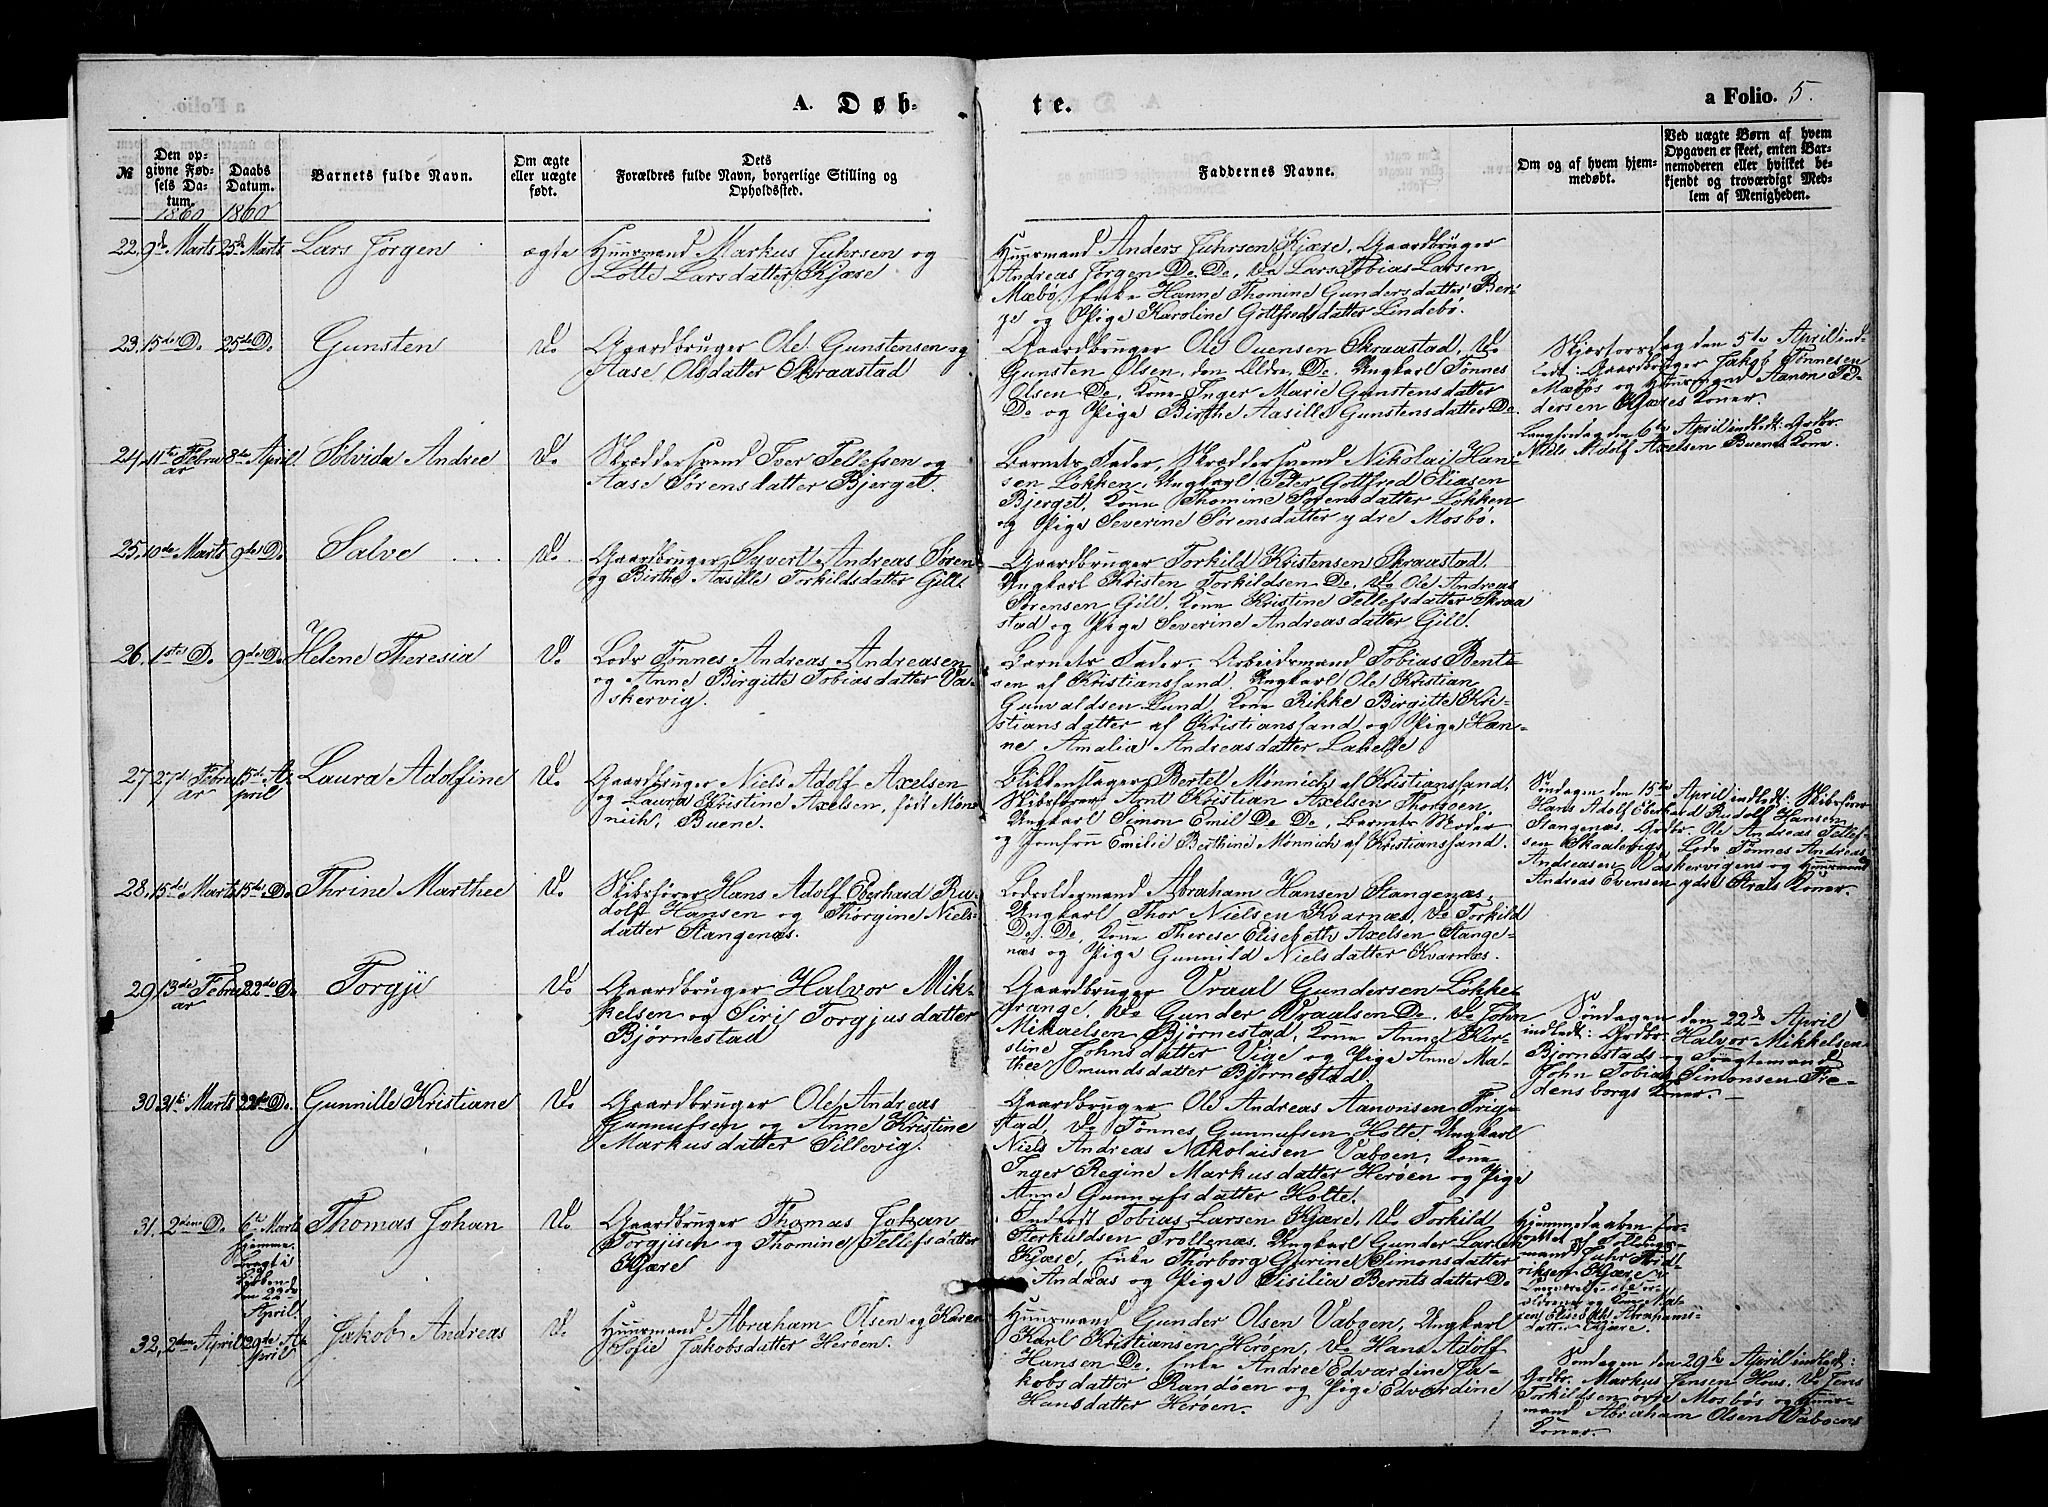 a Folio.
A. Døb-
te.
a Folio. 5.
№
Den op-
givne Fød-
sels Da-
tum.
1860
Daabs
Datum.
1860
Barnets fulde Navn.
Om ægte
eller uægte
født.
Dets
Forældres fulde Navn, borgerlige Stilling og
Opholdssted.
Faddernes Navne.
Om og af hvem hjem-
medøbt.
Ved uægte Børn af hvem
Opgaven er skeet, enten Bar-
nemoderen eller hvilket be-
kjendt og troværdigt Med-
lem af Menigheden.
22. 9de Marts 25de Marts Lars Jørgen ægte
Huusmand Markus Juhrsen og
Lotte Larsdatter Kjære
Huusmand Anders Juhrsen Kjære. Gaardbruger
Andreas Jørgen De. De. Do Lars Tobias Larsen
Mæbø, Enke Hanne Thomine Gundersdatter Ber-
ge og Pige Karoline Gottfredsdatter Lindebø.
23. 15de D. 25de D. Gunsten Do
Gaardbruger Ole Gunstensen og
Aase Olsdatter Skraastad
Gaardbruger Ole Ouensen Skraastad, Do
Gunsten Olsen, den Ældre, De. Ungkarl Tønnes
Olsen De. Kone Inger Marie Gunstensdatter
De og Pige Birthe Aasille Gunstensdatter De.
Skjærtorsdag den 5te April ind-
ledt: Gaardbruger Jakob Tønnesen
Mæbøs og Huusmand Aanon Pe-
dersen Kjæres Koner.
Langfredag den 6te April indledt: Grdbr.
Niels Adolf Axelsen Buenes Kone.
24. 11te Febru
ar 8de April Solvida Andree Do
Skræddersvend Iver Tellefsen og
Aase Sørensdatter Bjerget.
Barnets Fader, Skræddersvend Nikolai Han-
sen Løkken, Ungkarl Peter Gottfred Eliasen
Bjerget, Kone Thomine Sørensdatter Løkken
og Pige Severine Sørensdatter ydre Mosbø.
25. 10de Marts 9de D. Salve Do
Gaardbruger Syvert Andreas Søren
og Birthe Aasille Torkildsdatter Gill.
Gaardbruger Torkild Kristensen Skraastad.
Ungkarl Kristen Torkildsen De. Do Ole Andreas
Sørensen Gill, Kone Kristine Tellefsdatter Skraa
stad og Pige Severine Andreasdatter Gill.
26. 1ste D. 9de D. Helene Theresia Do
Lods Tønnes Andreas Andreasen
og Anne Birgitte Tobiasdatter Va-
skervig.
Barnets Fader, Arbeidsmand Tobias Bent-
sen af Kristianssand, Ungkarl Ole Kristian
Gunvaldsen Lund, Kone Rikke Birgitte Kri-
stiansdatter af Kristianssand og Pige Han-
ne Amalia Andreasdatter
27. 27de Febru
ar 15de A-
pril Laura Adolfine Do
Gaardbruger Niels Adolf Axelsen
og Laura Kristine Axelsen, født Mön
nich, Buene.
Blikkenslager Bertel Mönnich af Kristianssand.
Skibsfører Arnt Kristian Axelsen Thorsøen,
Ungkarl Simon Emil De De, Barnets Moder
og Jomfru Emilie Berthine Mönnich af Kristianssand.
Søndagen den 15de April indledt: Skibsfører
Hans Adolf Eberhard Rudolf Hansen
Stangenæs, Grdbr. Ole Andreas Tellef-
sen Skaalevigs, Lods Tönnes Andreas
Andreasen Vaskervigens og Huusmand
Andreas Evensen ydre Strais Koner.
28. 15de Marts 15de D. Thrine Marthee Do
Skibsfører Hans Adolf Eberhard Ru-
dolf Hansen og Thorgine Niels-
datter Stangenæs.
Lodsoldermand Abraham Hansen Stangenæs,
Ungkarl Thor Nielsen Kvarnæs, Do Torkild
De. De, Kone Therese Elisebeth Axelsen Stange-
næs og Pige Gunnild Nielsdatter Kvarnæs.
29. 13de Febru
ar 22de D. Torgji Do
Gaardbruger Halvor Mik-
kelsen og Siri Torgjusdatter
Bjørnestad
Gaardbruger Vraal Gundersen Løkke-
range, Do Gunder Vraalsen De, Do John
Mikaelsen Bjørnestad, Kone Anne Kir-
stine Johnsdatter Vige og Pige Anne Ma-
thee Omundsdatter Bjørnestad.
Søndagen den 22de April
indledt: Grdbr. Halvor Mikkelsen
Bjørnestads og
John Tobias Simonsen Fre-
densborgs Koner.
30. 31te Marts 22de D. Gunnille Kristiane Do
Gaardbruger Ole Andreas
Gunnufsen og Anne Kristine
Markusdatter Sillevig.
Gaardbruger Ole Andreas Aanonsen Frig-
stad, Do Tønnes Gunnufsen Holte, Ungkarl
Niels Andreas Nikolaisen Vaboen, Kone
Inger Regine Markusdatter Herøen og Pige
Anne Gunnufsdatter Holte.
31. 2den D. 6te Marts
hjemme.
Bragt i
Kirken
den 22de
April. Thomas Johan Do
Gaardbruger Thomas Johan
Torgjisen og Thomine Tellefsdatter
Kjære
Inderst Tobias Larsen Kjære, Do Torkild
Sterkuldsen Trollenæs, Ungkarl Gunder Larsen
Kjære, Enke Thorborg Gurine Simonsdatter
Andaas og Pige Sisilia Berntsdatter De
Hjemmedaaben for-
rettet af
mand Juhr
riksen Kjære
og Kone
Elisebeth Abrahams-
datter Kjære.
32. 2den April 29de A-
pril Jakob Andreas Do
Huusmand Abraham Olsen og Karen
Sofie Jakobsdatter Herøen.
Huusmand Gunder Olsen Vaboen, Ungkarl
Karl Kristiansen Herøen, Do Hans Adolf
Hansen De, Enke Andree Edvardine Ja-
kobsdatter Randøen og Pige Edvardine
Hansdatter Herøen.
Søndagen den 29de April indledt:
Grdbr. Markus Jensen Hous, Do Jens
Torkildsen øvre Mosbøs og Huus-
mand Abraham Olsen Vaboens
Koner.